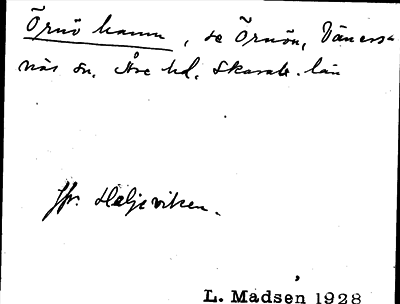 Örnö hamn, se Örnön, Väners-
näs sn. Åse hd. Skarab. län
Jfr. Haljeviken.
L. Madsen 1928